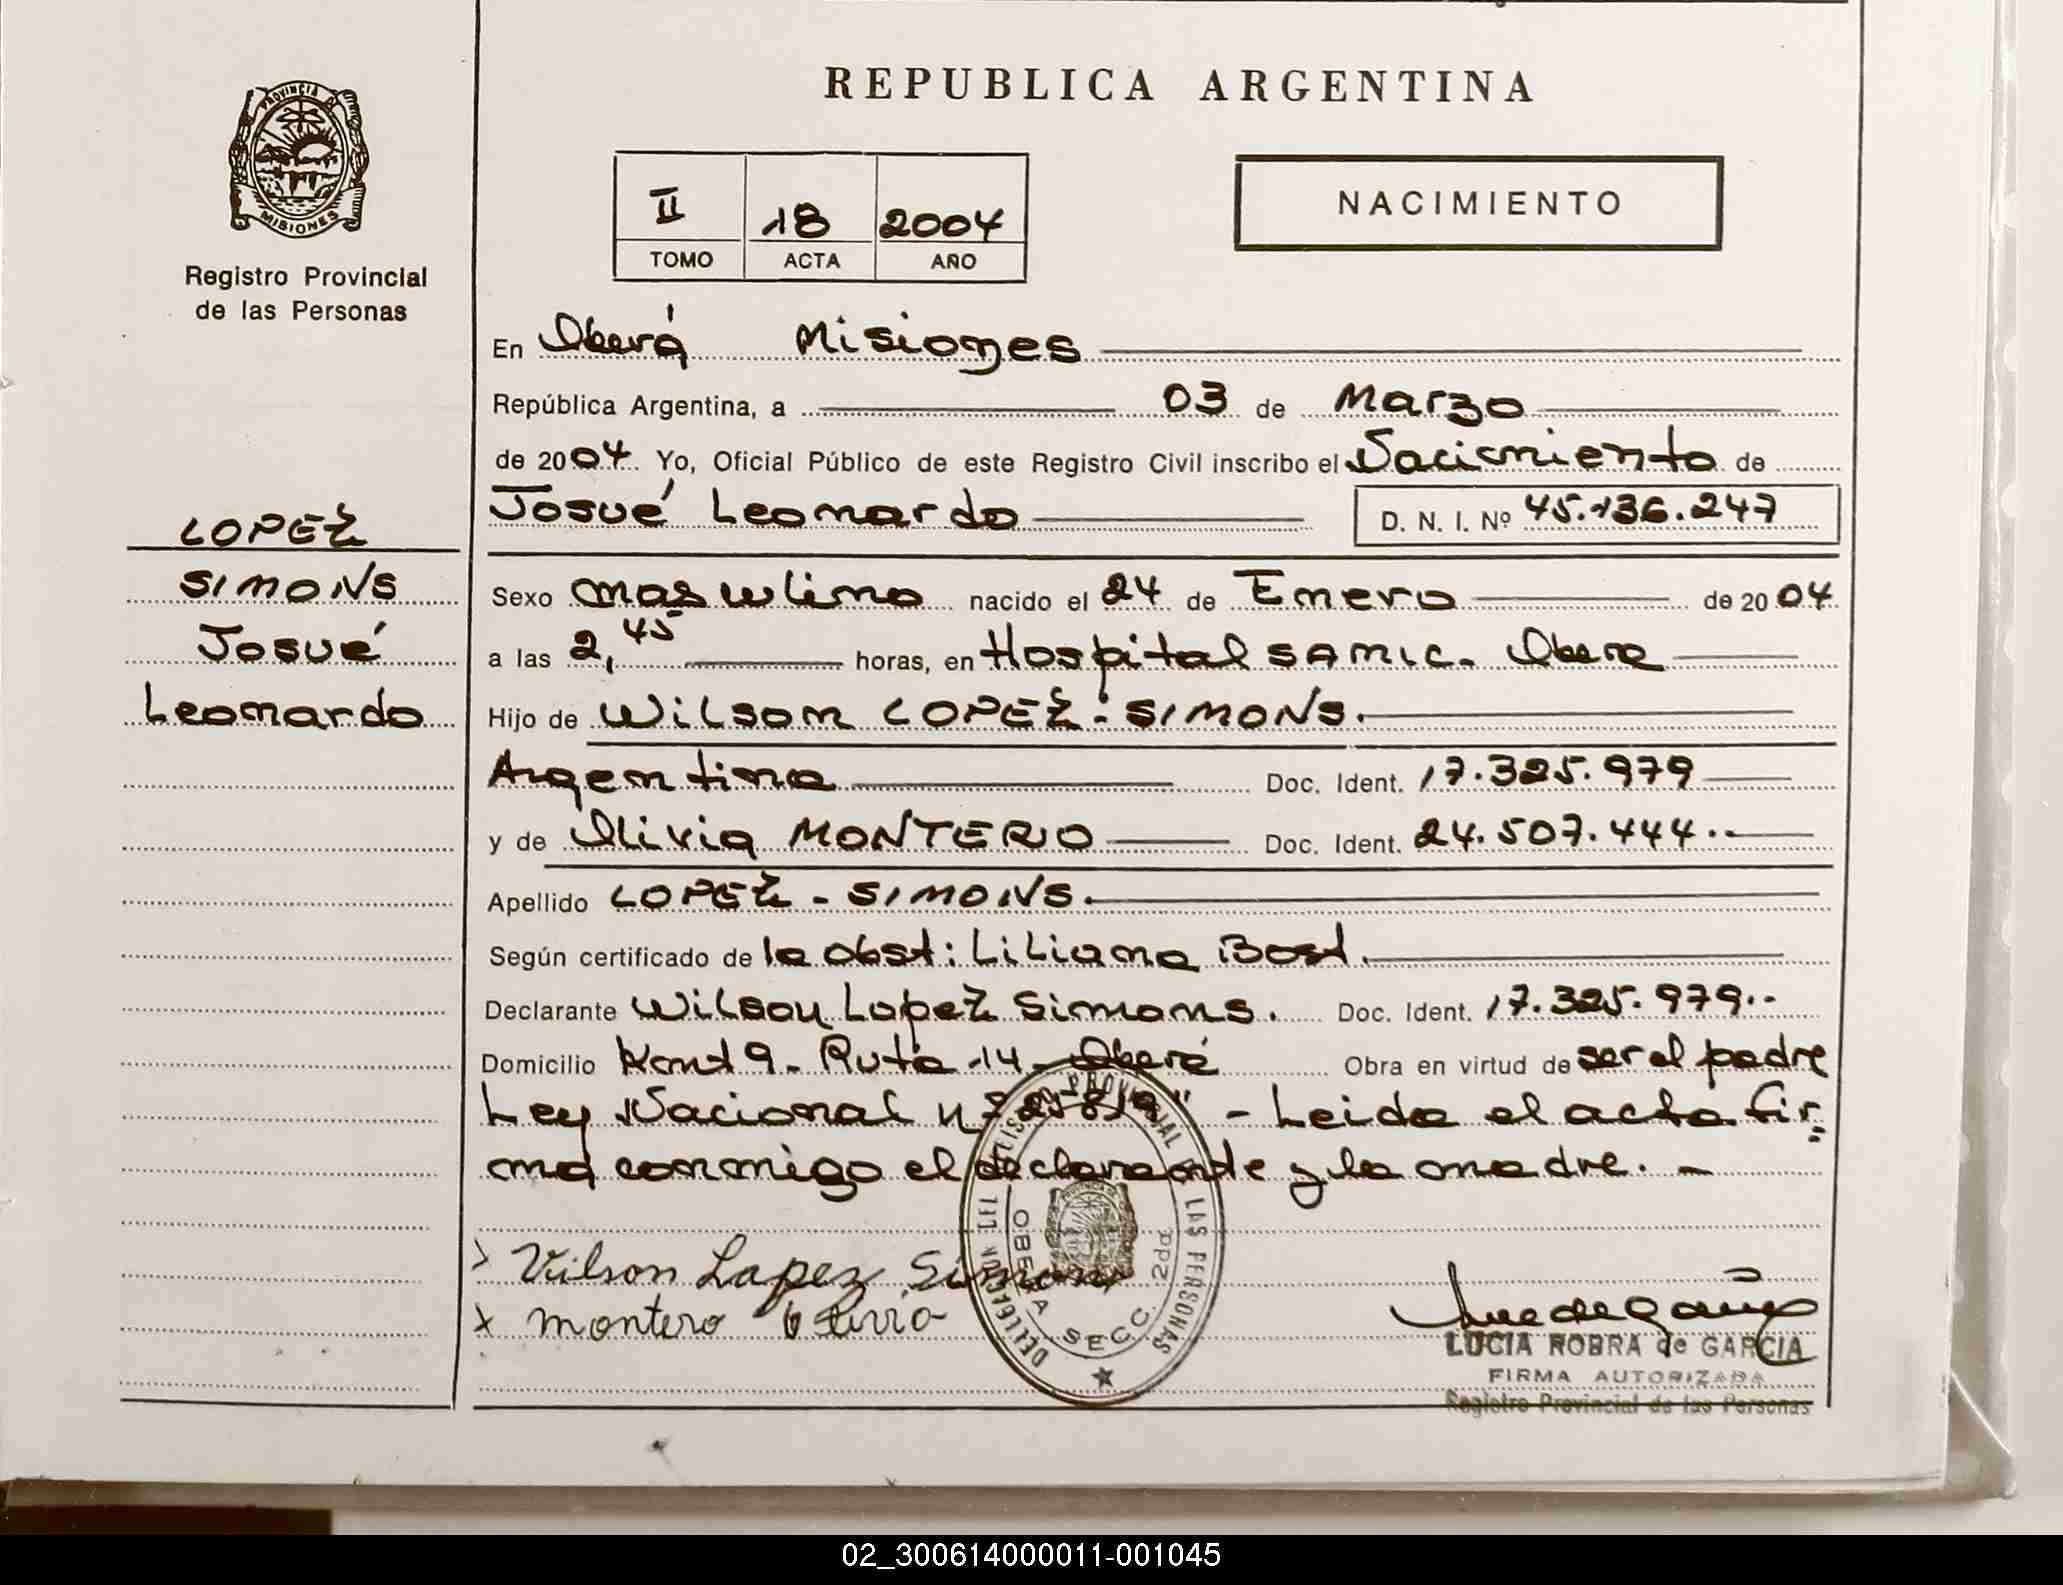 REPUBLICA ARGENTINA
PROVINCIA D
MISIONES
Registro Provincial
de las Personas
II 18 2004
TOMO ACTA AÑO
NACIMIENTO
En Oberá Misiones
República Argentina, a 03 de Marzo
de 2004. Yo, Oficial Público de este Registro Civil inscribo el Nacimiento de
Josué Leonardo D. N. I. Nº 45.136.247
LOPEZ
SIMONS
Josué
Leonardo
Sexo masculino nacido el 24 de Enero de 2004
a las 2,45 horas, en Hospital SAMIC. Obera
Hijo de Wilson LOPEZ - SIMONS.
Argentina Doc. Ident. 17.325.979
y de Olivia MONTERO Doc. Ident. 24.507.444..-
Apellido LOPEZ - SIMONS.
Según certificado de la obst: Liliana Bost.
Declarante Wilson Lopez Simons. Doc. Ident. 17.325.979..-
Domicilio Kmt 9. Ruta 14 - Oberá Obra en virtud de ser el padre
Ley Nacional Nº - Leida el acta fir=
ma conmigo el declarante y la madre. -
Vilson Lopez Simons
x montero
DELEGACION DEL REGISTRO PROVINCIAL DE LAS PERSONAS
OBERA SECC. 2da.
LUCIA ROBRA de GARCIA
FIRMA AUTORIZADA
Registro Provincial de las Personas
02_300614000011-001045